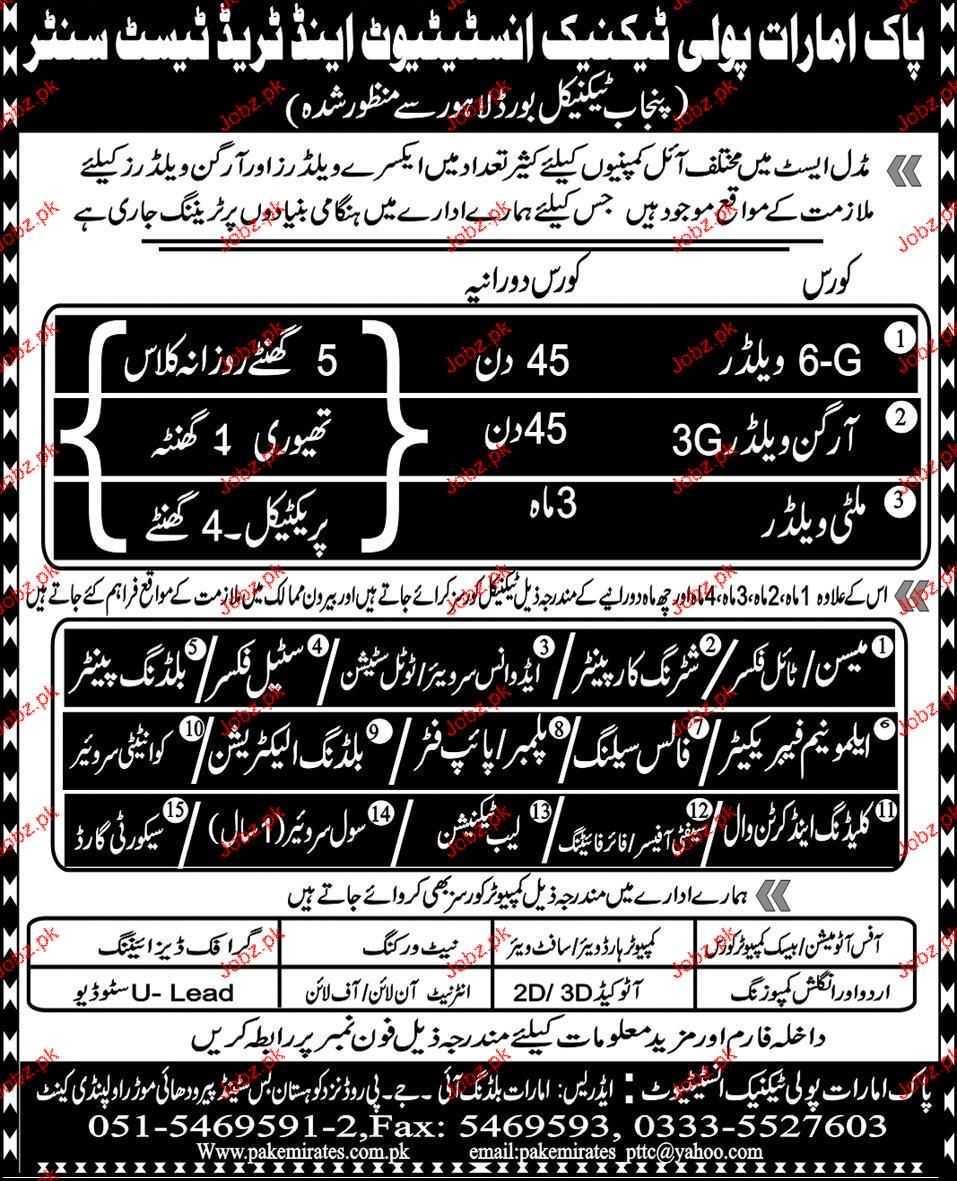 پاک امارات پولی ٹیکنیک انسٹیٹیوٹ اینڈ ٹریڈ ٹیسٹ سنٹر
(پنجاب ٹیکنیکل بورڈ لاہور سے منظور شدہ)
مڈل ایسٹ میں مختلف آئل کمپنیوں کیلئے کثیر تعداد میں ایکسرے ویلڈرز اور آرگن ویلڈرز کیلئے
ملازمت کے مواقع موجود ہیں جس کیلئے ہمارے ادارے میں ہنگامی بنیادوں پر ٹریننگ جاری ہے
کورس کورس دورانیہ
1 6-G ویلڈر 45 دن 5 گھنٹے روزانہ کلاس
2 آرگن ویلڈر 3G 45 دن تھیوری 1 گھنٹہ
3 ملٹی ویلڈر 3 ماہ پریکٹیکل۔ 4 گھنٹے
اس کے علاوہ 1 ماہ، 2 ماہ، 3 ماہ، 4 ماہ اور چھ ماہ دورانیے کے مندرجہ ذیل ٹیکنیکل کورسز کرائے جاتے ہیں اور بیرون ممالک میں ملازمت کے مواقع فراہم کئے جاتے ہیں
1 میسن/ ٹائل فکسر / 2 شٹرنگ کارپینٹر / 3 ایڈوانس سرویئر/ ٹوٹل سٹیشن / 4 سٹیل فکسر / 5 بلڈنگ پینٹر
6 ایلمونیم فیبریکیٹر / 7 فالس سیلنگ / 8 پلمبر/ پائپ فٹر / 9 بلڈنگ الیکٹریشن / 10 کوانٹیٹی سرویئر
11 کلیڈنگ اینڈ کرٹن وال / 12 سیفٹی آفیسر/ فائر فائیٹنگ / 13 لیب ٹیکنیشن / 14 سول سروئیر (1 سال) / 15 سیکورٹی گارڈ
ہمارے ادارے میں مندرجہ ذیل کمپیوٹر کورسز بھی کروائے جاتے ہیں
آفس آٹومیشن/ بیسک کمپیوٹر کورس کمپیوٹر ہارڈ ویئر/ سافٹ ویئر نیٹ ورکنگ گرافک ڈیزائیننگ
اردو اور انگلش کمپوزنگ آٹو کیڈ 2D/ 3D انٹرنیٹ آن لائن/ آف لائن U- Lead سٹوڈیو
داخلہ فارم اور مزید معلومات کیلئے مندرجہ ذیل فون نمبر پر رابطہ کریں
پاک امارات پولی ٹیکنیک انسٹیٹیوٹ : ایڈریس: امارات بلڈنگ آئی ۔ جے ۔ پی روڈ نزد کوہستان بس سٹینڈ پیرودھائی موڑ راولپنڈی کینٹ
051-5469591-2,Fax: 5469593, 0333-5527603
Www.pakemirates.com.pk email:pakemirates_pttc@yahoo.com